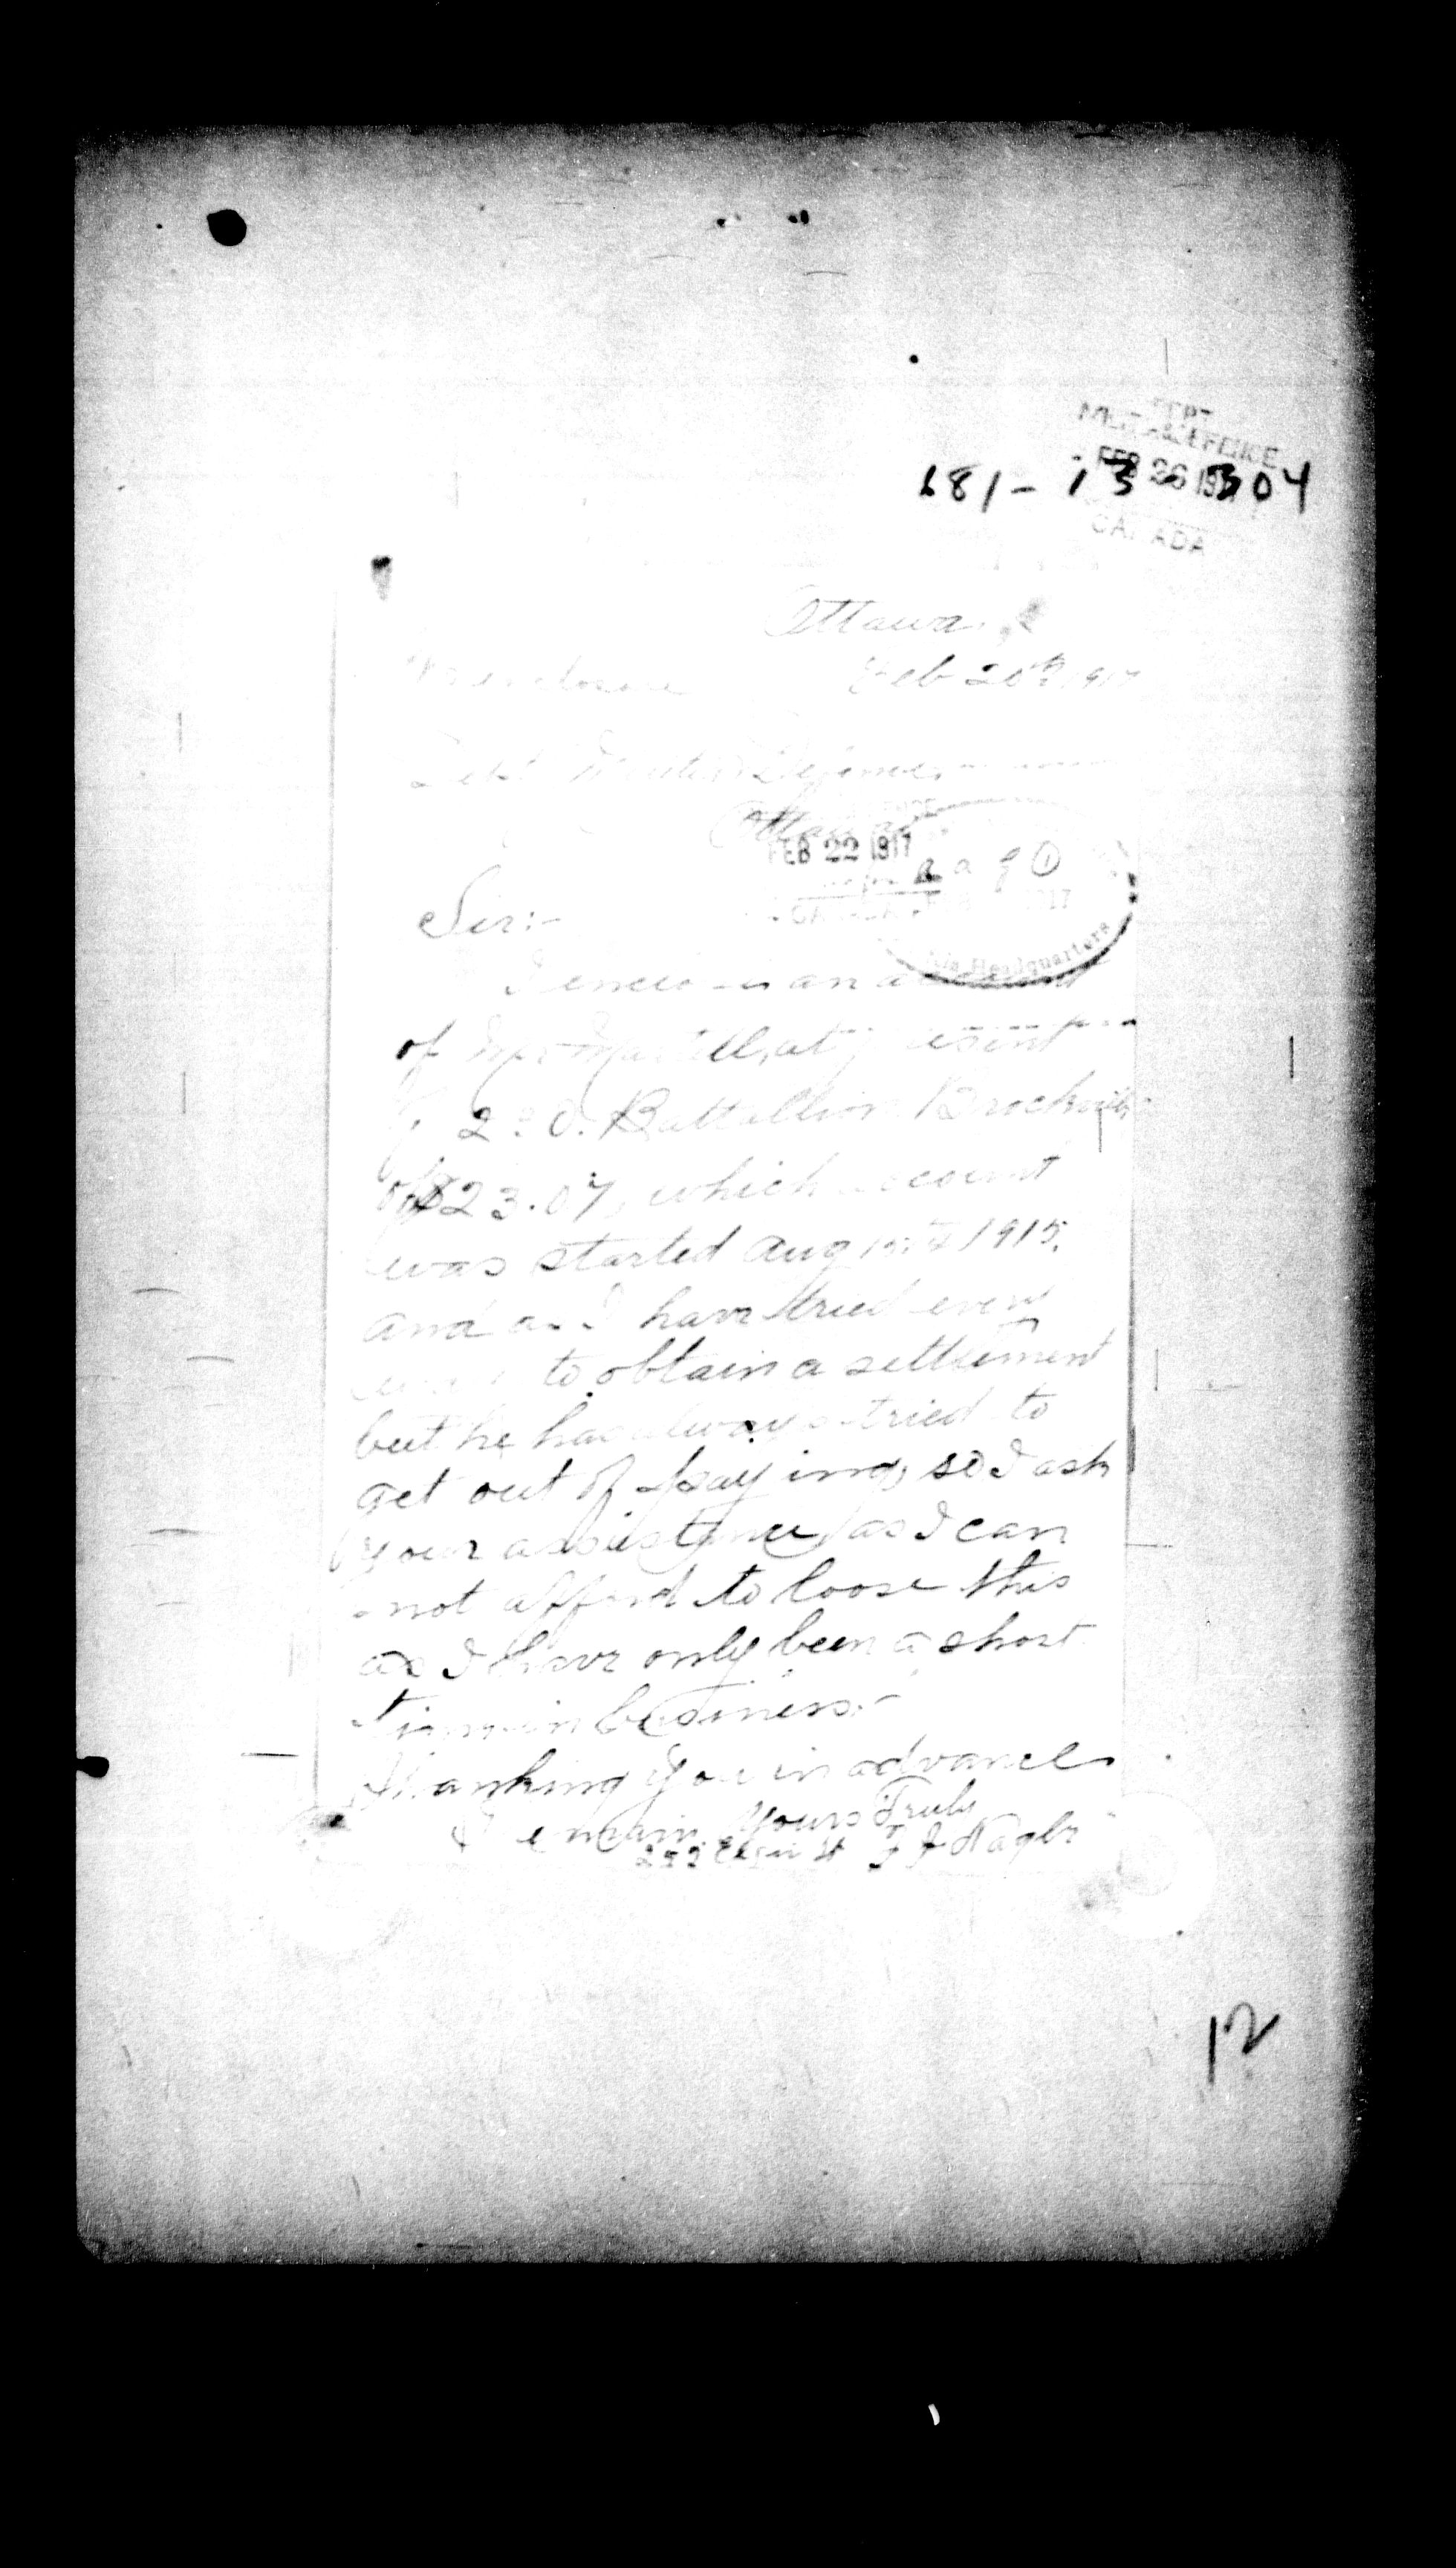 DEPT
MILITIA & DEFENCE
FEB 26 191
681-13-304
CANADA
Ottawa
Feb 20th 1917
Dept Defence
Ottawa
FEB 22 1917
a a g ①
CANADA
Headquarters
Sir:-
I an account
of Mr Martell, at present
Battallion Brockville
of $23.07, which account
was started Aug 1915.
and as I have tried every
way to obtain a settlement
but he has always tried to
get out of paying, so I ask
your assistance as I can
not afford to loose this
as I have only been a short
time in business.-
Thanking you in advance
I remain Yours Truly
Elgin St J Nagle
12